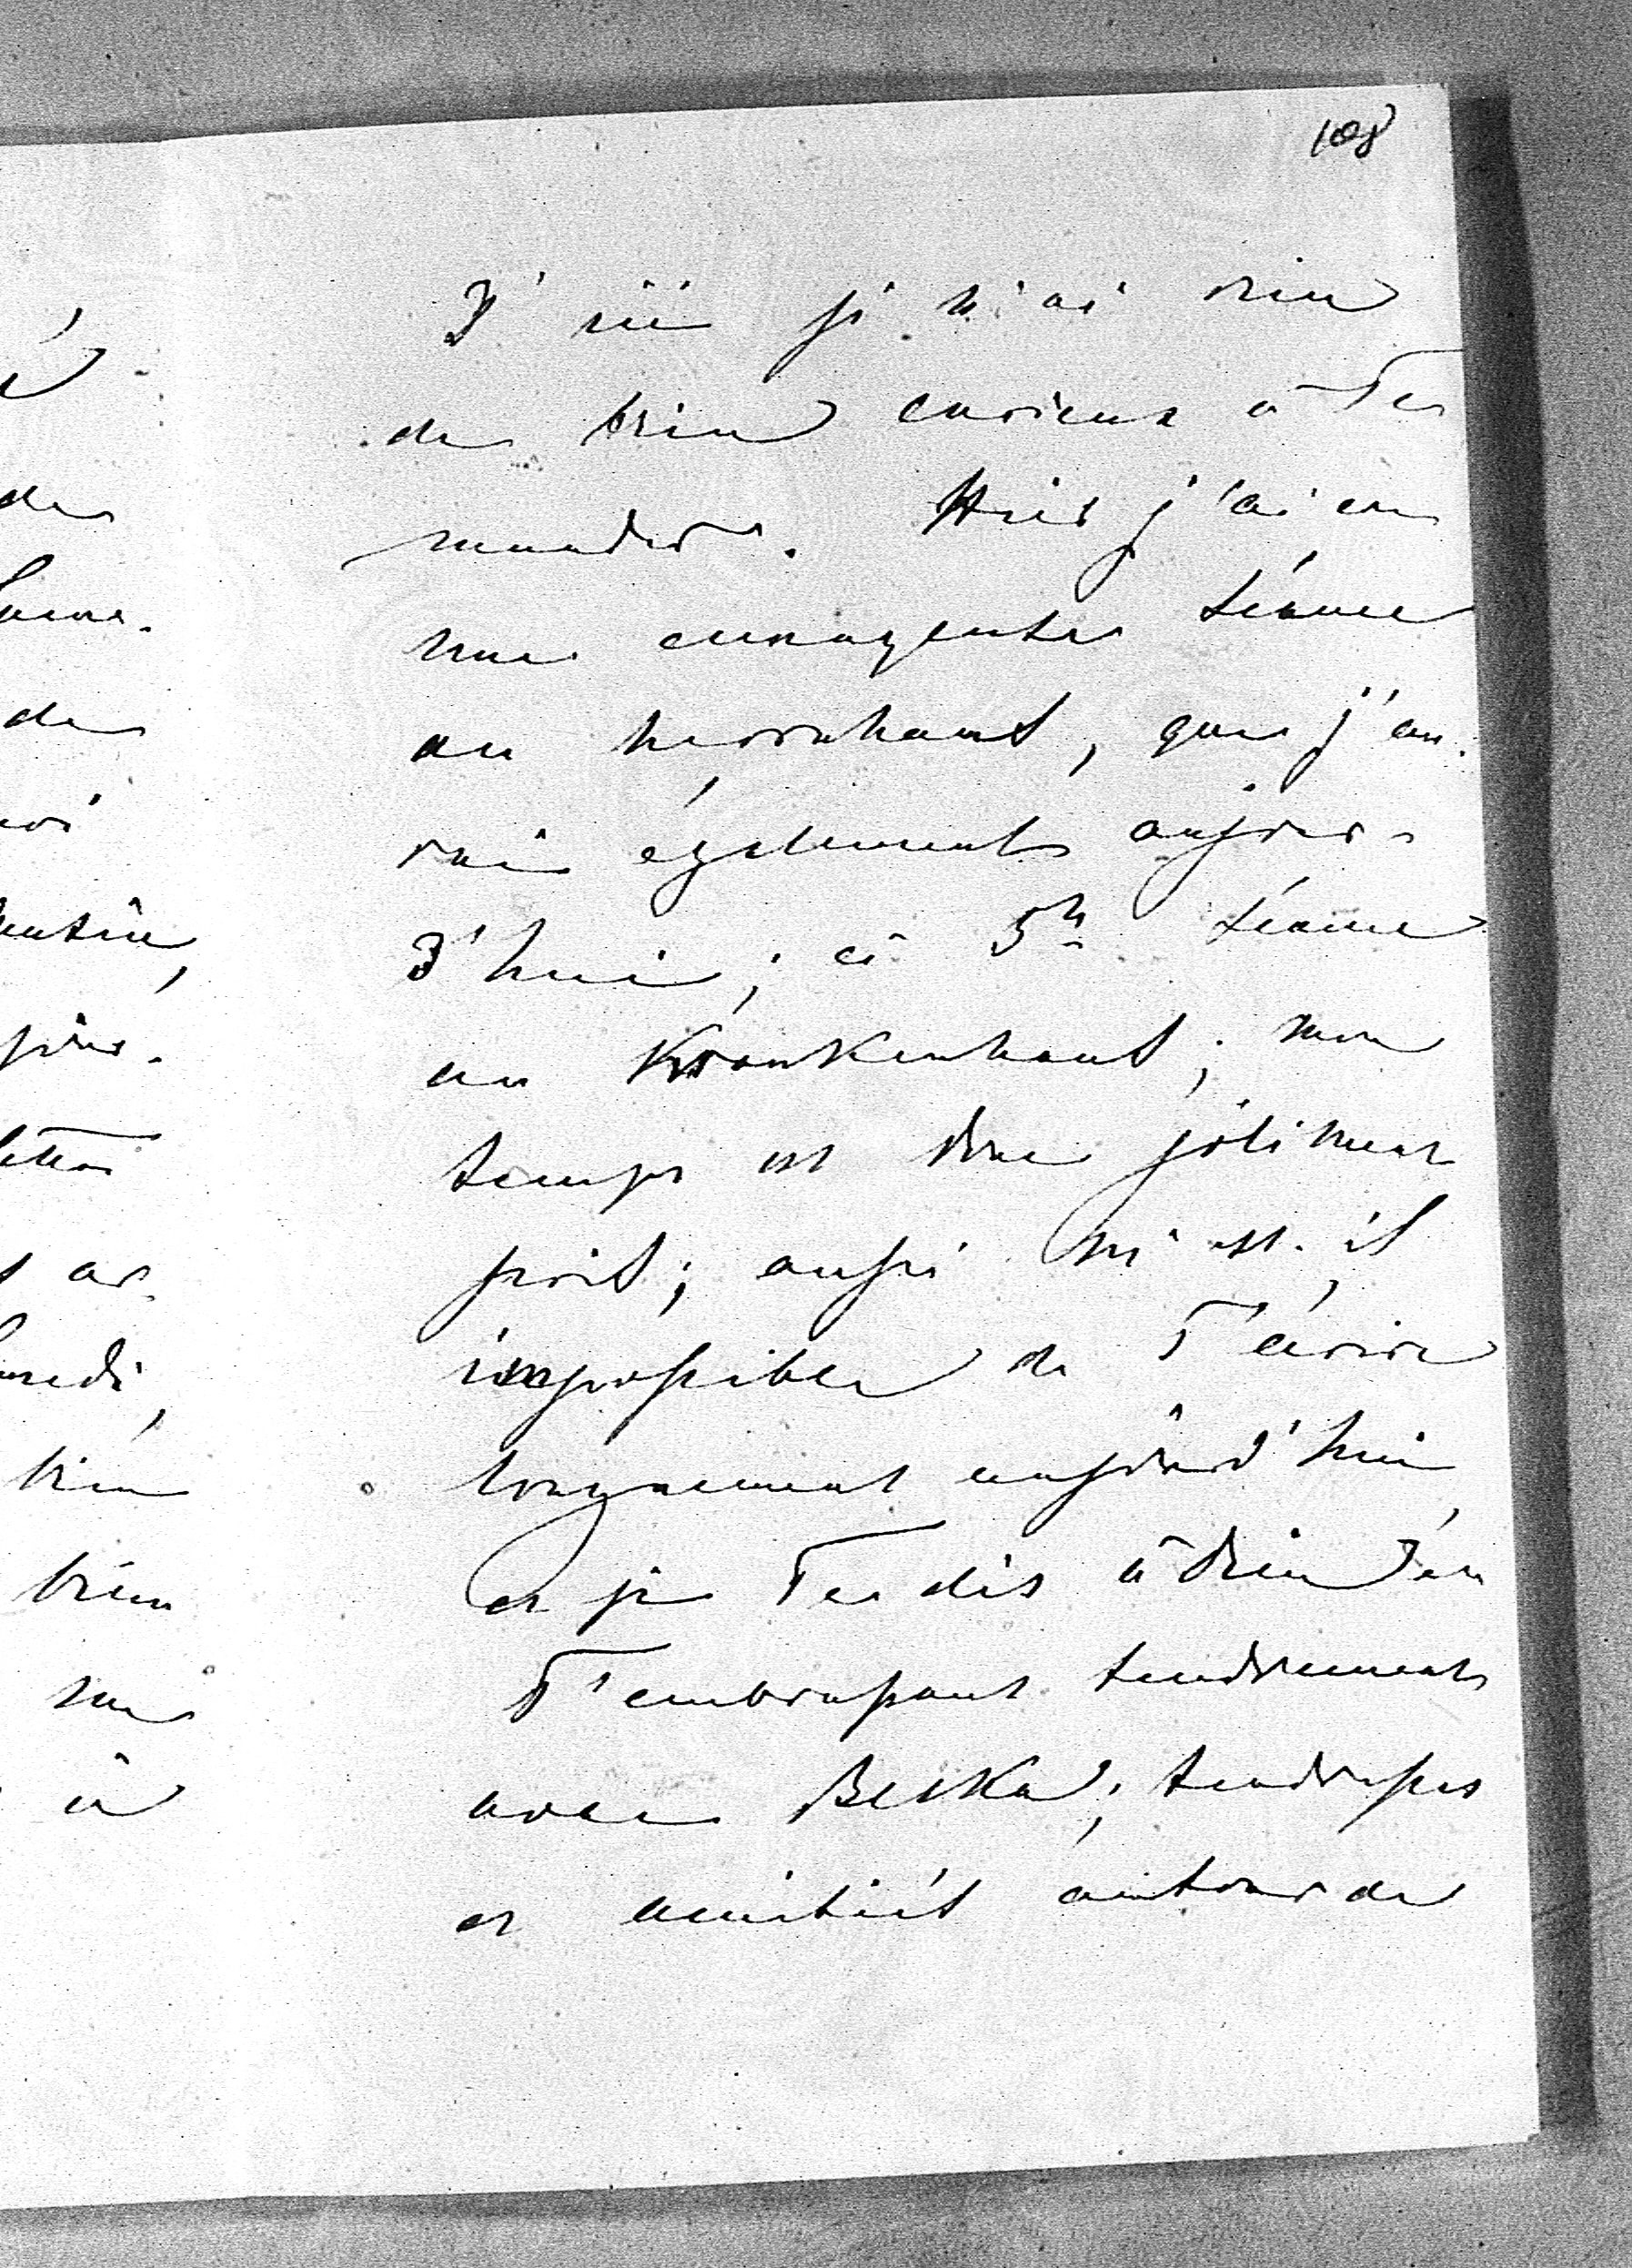 108
D'ici je n'ai rien
de bien curieux à Te
mander. Hier j'ai eu
une enrageante séance
au herrnhaus, que j'au-
rai également aujour-
d'hui; à 5h séance
au Krankenhaus; mon
temps est donc joliment
pris; aussi m'est-il
impossible de T'écrire
longuement aujourd'hui
et je Te dis adieu en
T'embrassant tendrement
avec Beska; tendresses
et amitiés autour de
de
de
bien
bien
à